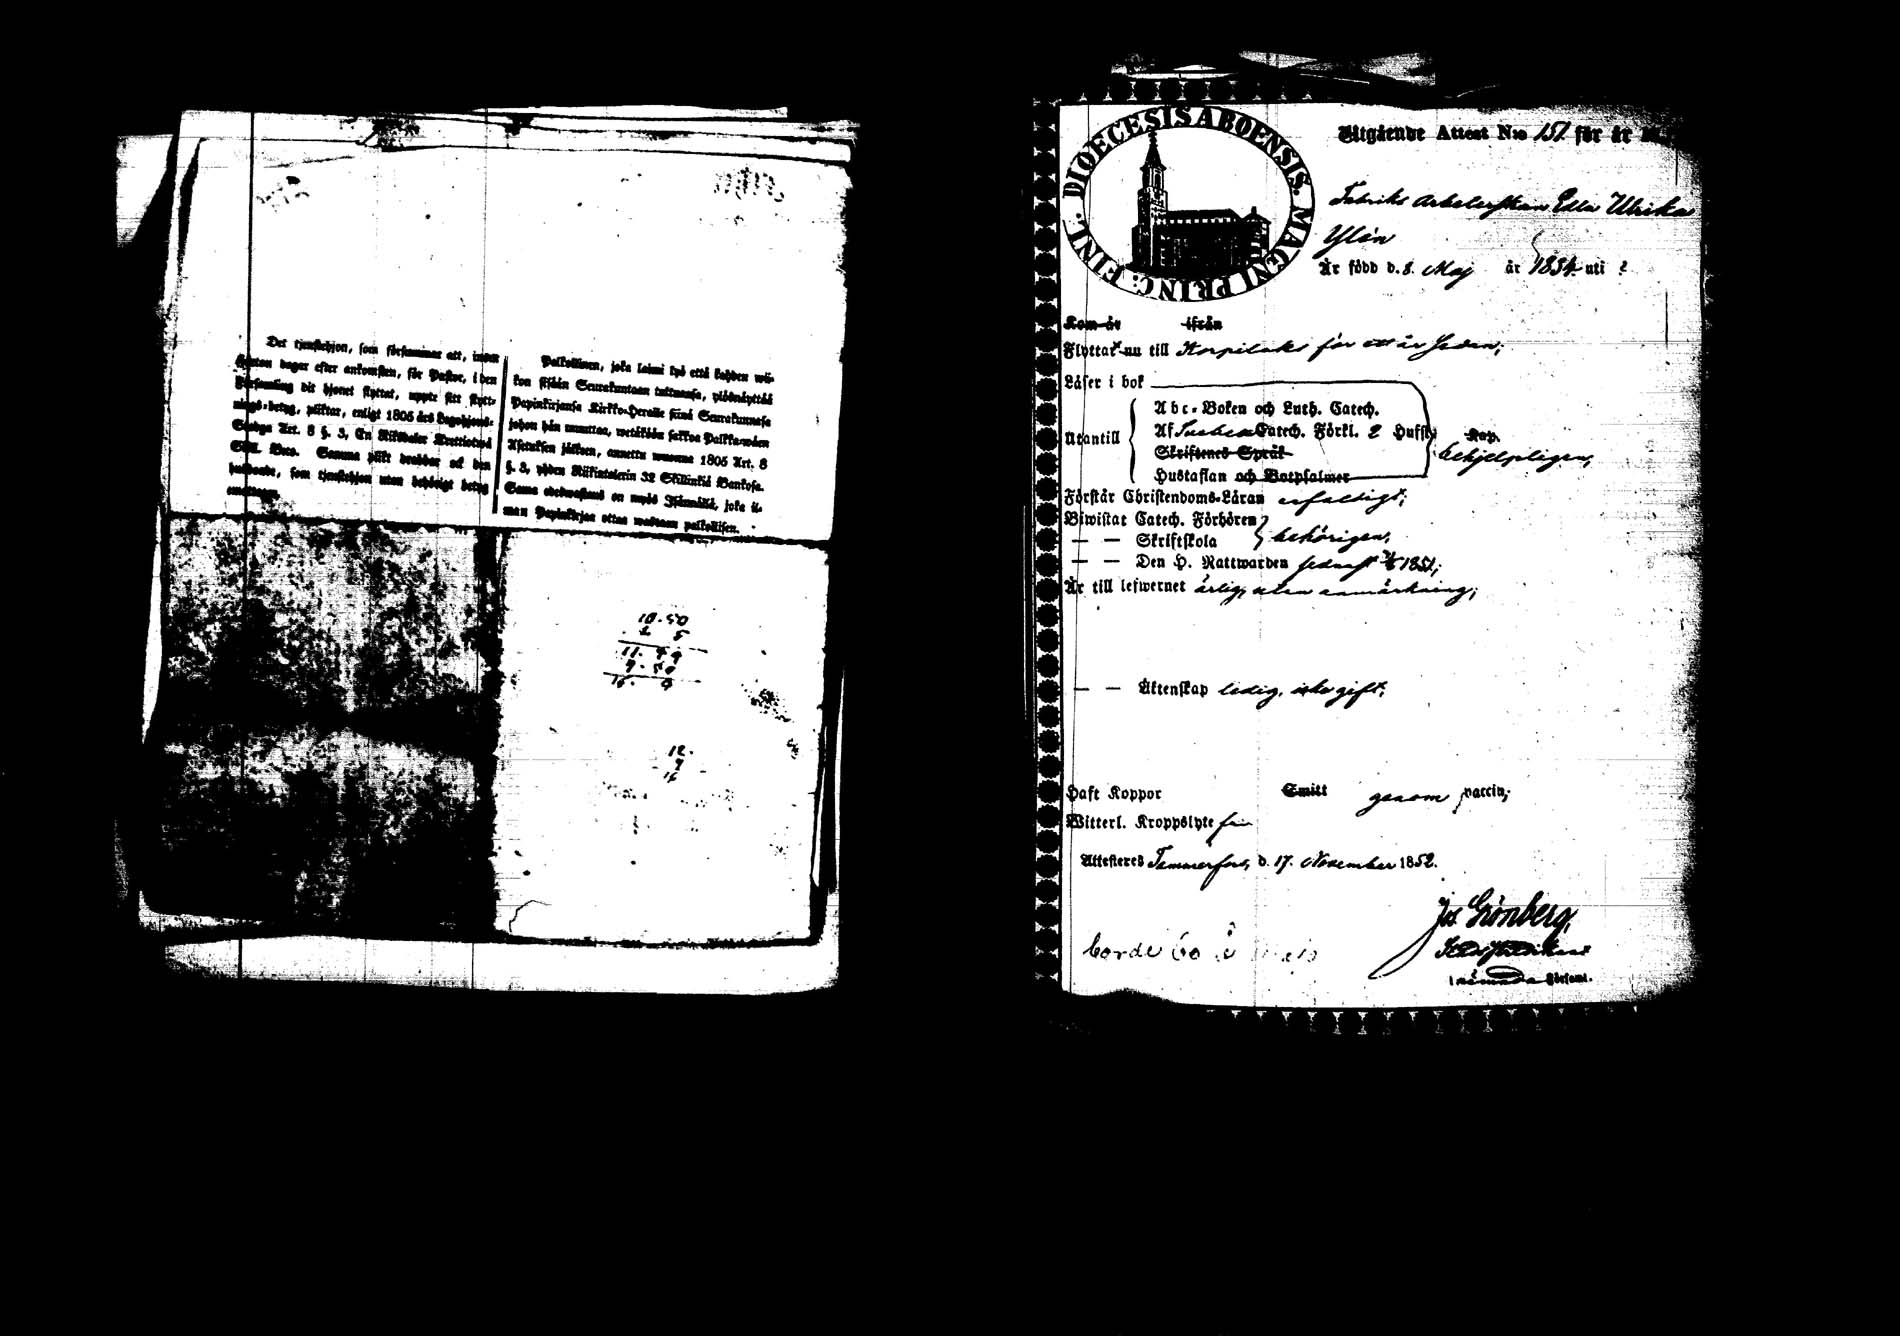 Det tjenstehjon, som försummar att, innan
fjorton dagar efter ankomsten, för Pastor, i den
Församling dit hjonet flyttat, uppte sitt flytt-
nings-betyg, pliktar, enligt 1805 års Legohjons-
Stadga Art. 8 §. 3, En Riksdaler Trettiotwå
Skill. Bco. Samma plikt drabbar ock den
husbonde, som tjenstehjon utan behörigt betyg
emottager.
Palkollinen, joka laimi lyö että kahden wii-
kon sisään Seurakuntaan tultuansa, ylösnäyttää
Papinkirjansa Kirkko-Herralle siinä Seurakunnasa
johon hän muuttaa, wetäköön sakkoa Palkka-wäen
Asetuksen jälkeen, annettu wuonna 1805 Art. 8
§. 3, yhden Riikintalerin 32 Skillinkiä Bankosa.
Sama edeswastaus on myös Isännällä, joka il-
man Papinkirjaa ottaa wastaan palkollisen.
10.50
2 5
11. 9 9
9.50
16. 9
12.
9
16
DIOECESIS ABOENSIS. MAGNI PRINC: FINL.
Utgående Attest N:o 151 för år
Fabriks Arbeterskan Ulrika
Ylén
Är född d. 8. Maj år 1834 uti ?
Kom år ifrån
Flyttar nu till Korpilaks för ett år sedan;
Läser i bok
Abc-Boken och Luth. Catech.
Utantill
Af Catech. Förkl. 2 Hufst. Kap.
Skriftenes Språk behjelpligen,
Hustaflan och Botpsalmer
Förstår Christendoms-Läran enfaldigt;
Biwistat Catech. Förhören
— — Skriftskola behörigen,
— — Den H. Nattwarden sednast 1851;
Är till lefwernet ärlig, utan anmärkning;
— — Äktenskap ledig, icke gift;
Haft Koppor Smitt genom vaccin;
Witterl. Kroppslyte fri
Attesteras Tammerfors, d. 17. November 1852.
Grönberg,
i Församl.
borde